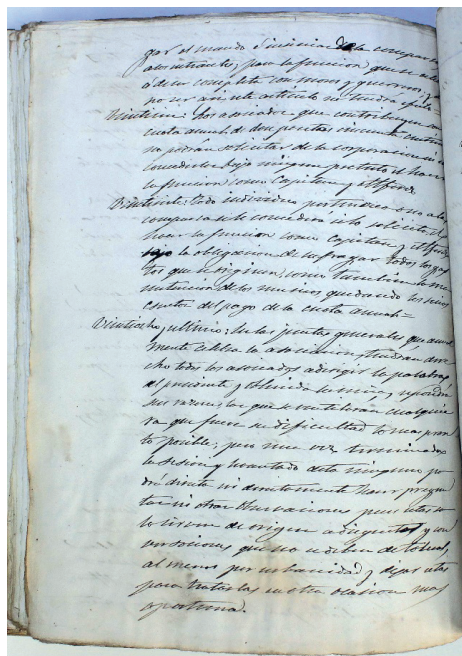 gar el mando é insinia de la comparsa
a los entrantes, para la funcion que se
ó de ser completa con moros y
no ser así este articulo no tendrá efecto
Veintiseis: Los asociados que contribuyen con
cuota anual de dos pesetas cincuenta centim
no podrán solicitar de la corporacion ni
concederles bajo ningun pretesto el hacer
la funcion como Capitan y Alferez
Veintisiete: todo individuo pertenezca ó no a la
comparsa se le concederá si lo solicita el
hacer la funcion como Capitan y Alferez
bajo la obligacion de sufragar todos los gas
tos que se originen, como tambien la ma
nutencion de los musicos quedando los socios
esentos del pago de la cuota anual=
Veintiocho y ultimo: En las juntas generales que anual
mente celebra la asociacion, tendrán dere
cho todos los asociados a dirigir la palabra
al presidente y obtenida la venia, espondrán
sus razones, las que se ventilarán cualquie
ra que fuere su dificultad lo mas pron
to posible; pero una vez terminada
la sesion y levantada esta ninguno po
drá directa ni indirectamente hacer pregun
tas ni otras observaciones pues estas so
lo sirven de origen a disgustos y con
versaciones que no se deben de tolerar,
al menos por urbanidad y dejar estas
para tratarlas en otra ocasion mas
oportuna.